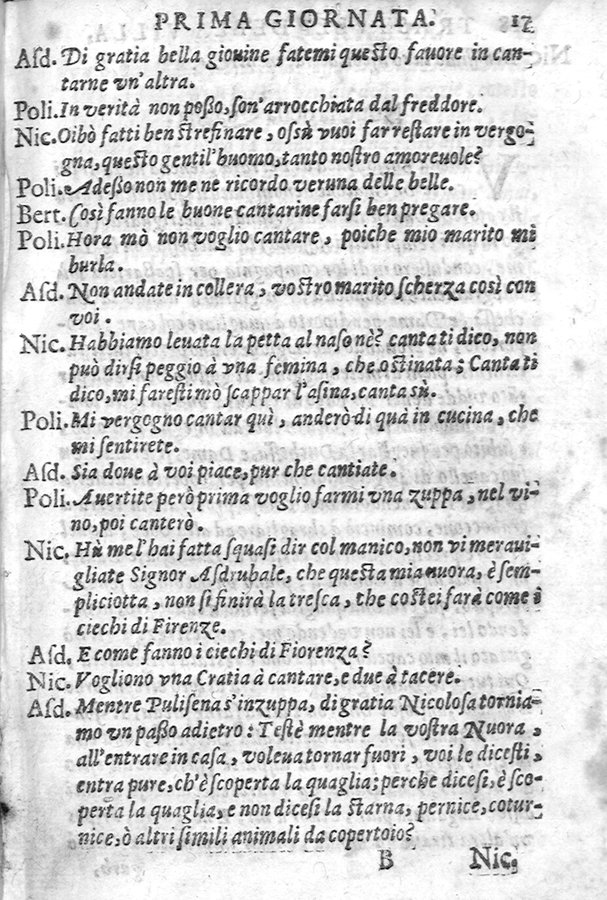 PRIMA GIORNATA. 17
Asd. Di gratia bella giouine fatemi questo fauore in can-
tarne vn'altra.
Poli. In verità non posso, son'arrocchiata dal freddore.
Nic. Oibò fatti ben strefinare, ossù vuoi far restare in vergo-
gna, questo gentil'huomo, tanto nostro amoreuole?
Poli. Adesso non me ne ricordo veruna delle belle.
Bert. Così fanno le buone cantarine farsi ben pregare.
Poli. Hora mò non voglio cantare, poiche mio marito mi
burla.
Asd. Non andate in collera, vostro marito scherza così con
voi.
Nic. Habbiamo leuata la petta al naso nè? canta ti dico, non
può dirsi peggio à vna femina, che ostinata; Canta ti
dico, mi faresti mò scappar l'asina, canta sù.
Poli. Mi vergogno cantar quì, anderò di quà in cucina, che
mi sentirete.
Asd. Sia doue à voi piace, pur che cantiate.
Poli. Auertite però prima voglio farmi vna zuppa, nel vi-
no, poi canterò.
Nic. Hù me l'hai fatta squasi dir col manico, non vi meraui-
gliate Signor Asdrubale, che questa mia nuora, è sem-
pliciotta, non si finirà la tresca, che costei farà come i
ciechi di Firenze.
Asd. E come fanno i ciechi di Fiorenza?
Nic. Vogliono vna Cratia à cantare, e due à tacere.
Asd. Mentre Pulisena s'inzuppa, di gratia Nicolosa tornia-
mo vn passo adietro: Testè mentre la vostra Nuora,
all'entrare in casa, voleua tornar fuori, voi le dicesti,
entra pure, ch'è scoperta la quaglia; perche dicesi, è sco-
perta la quaglia, e non dicesi la starna, pernice, cotur-
nice, ò altri simili animali da copertoio?
B Nic,